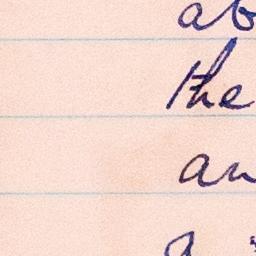 ab
the
an